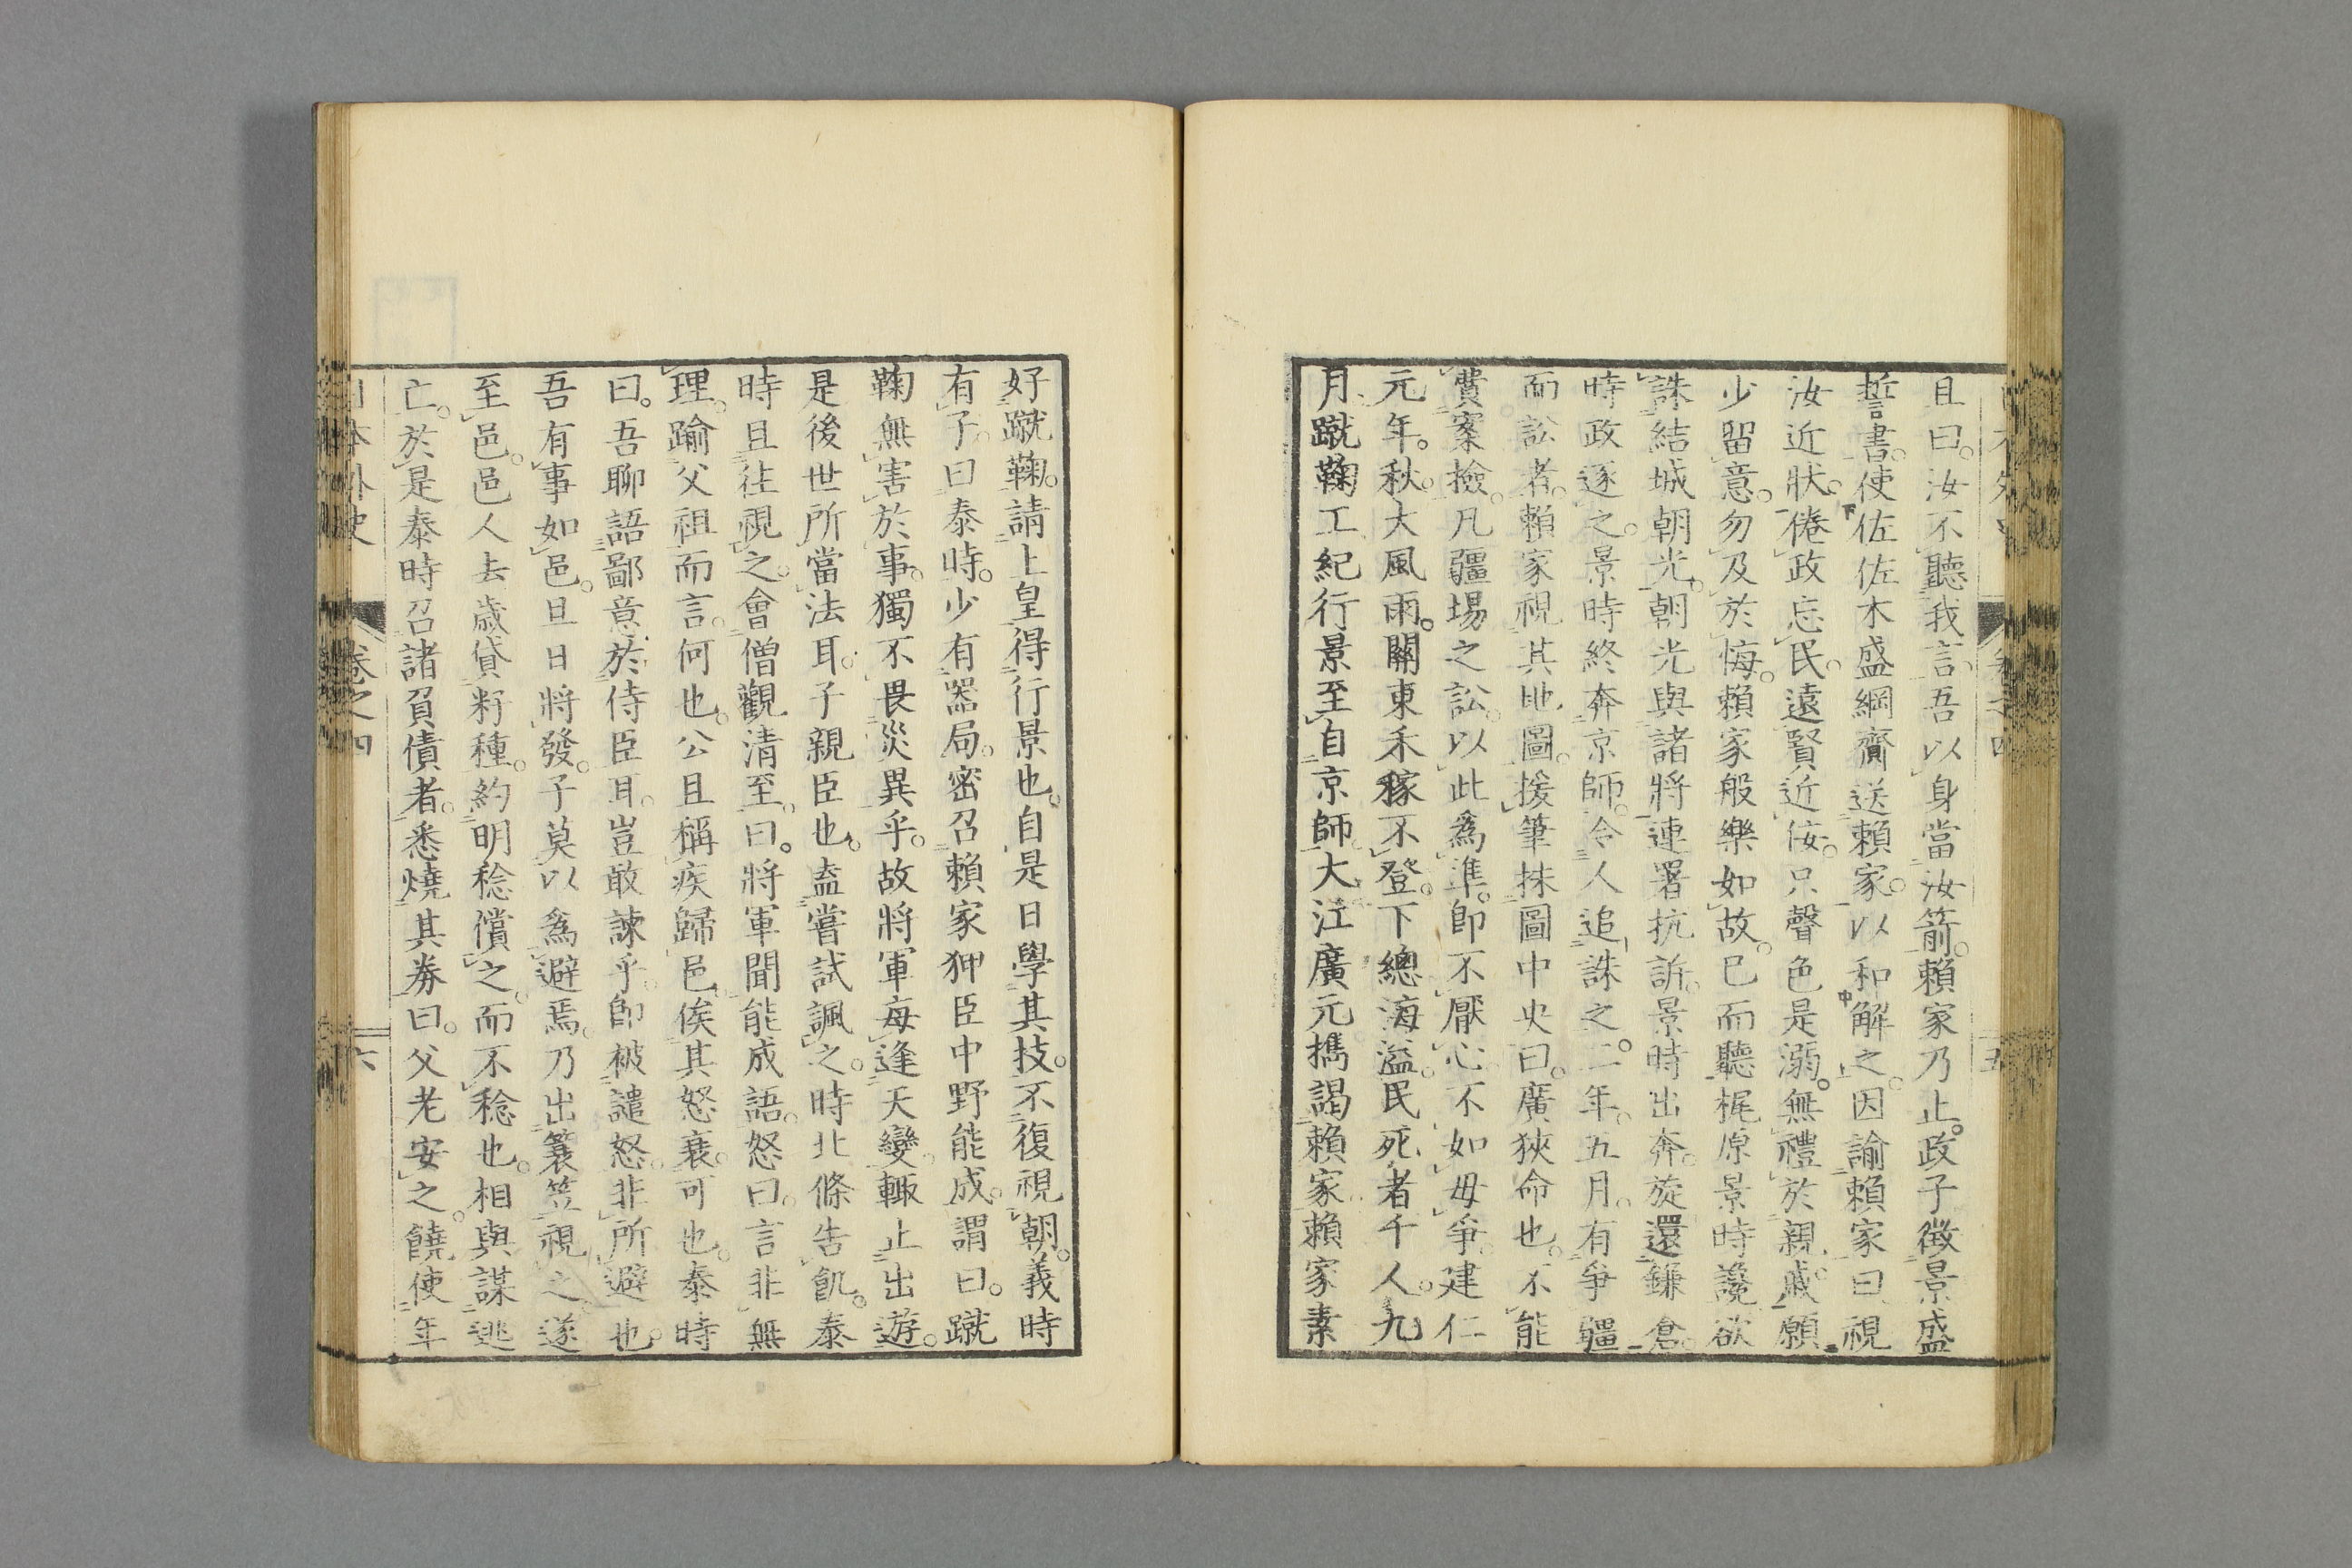 且曰。汝不聽我言。吾以身當汝箭。賴家乃止。政子徵景盛
誓書。使佐佐木盛綱齎送賴家。以和解之。因諭賴家曰視
汝近狀。倦政忘民。遠賢近佞。只聲色是溺。無禮於親戚。願
少留意。勿及於悔。賴家般樂如故。已而聽梶原景時讒欲
誅結城朝光。朝光與諸將連署抗訴。景時出奔。旋還鎌倉。
時政逐之。景時終奔京師。令人追誅之。二年。五月。有爭疆
而訟者。賴家視其地圖。援筆抹圖中央曰。廣狹命也。不能
費案撿。凡疆場之訟。以此爲準。卽不厭心不如毋爭。建仁
元年。秋。大風雨。關東禾稼不登。下總海溢。民死者千人。九
月蹴鞠工紀行景至自京師。大江廣元擕謁賴家賴家素
好蹴鞠。請上皇得行景也。自是日學其技。不復視朝。義時
有子。曰泰時。少有器局。密召賴家狎臣中野能成。謂曰。蹴
鞠無害於事。獨不畏災異乎。故將軍每逢天變。輙止出遊。
是後世所當法耳。子親臣也。盍嘗試諷之。時北條告飢。泰
時且徃視之。會僧觀淸至。曰。將軍聞能成語。怒曰。言非無
理。踰父祖而言。何也。公且稱疾歸邑。俟其怒衰。可也。泰時
曰。吾聊語鄙意於侍臣耳。豈敢諫乎。卽被譴怒。非所避也。
吾有事如邑。旦日將發。子莫以爲避焉。乃出簑笠視之遂
至邑。邑人去歲貸籽種。約明稔償之。而不稔也。相與謀逃
亡。於是泰時召諸負債者。悉燒其劵曰。父老安之。饒使年
日本外史 卷之四 六